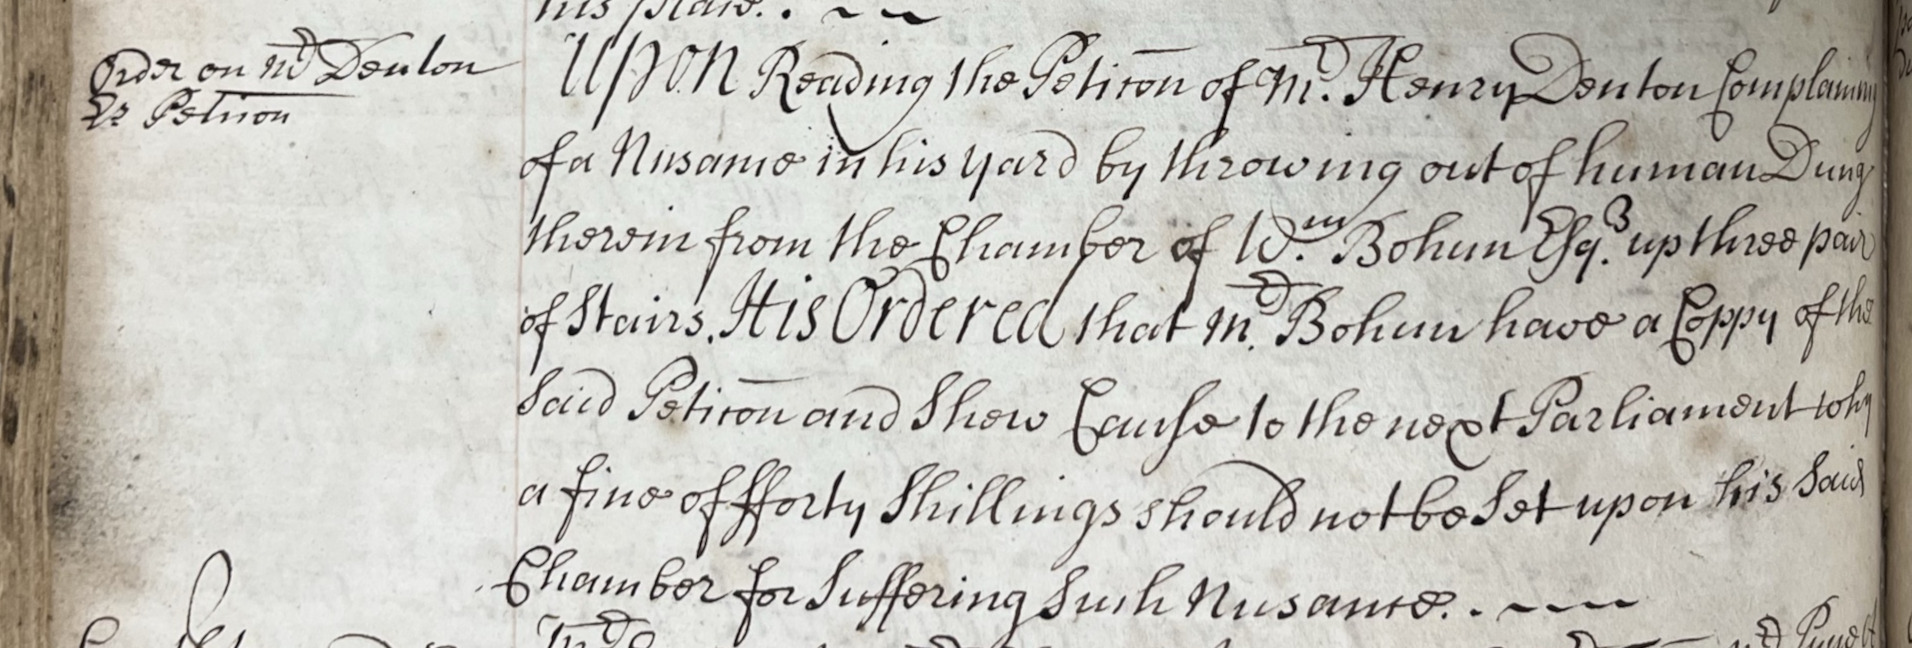 his place. . ~ ~
Order on Mr Denton
Es Petition
Upon Reading the Petic̄on of Mr. Henry Denton Complaining
of a Nusance in his yard by throwing out of human Dung
therein from the Chamber of Wm. Bohun Esqr. up three pair
of Stairs. It is Ordered that Mr. Bohun have a Coppy of the
Said Petic̄on and Shew Cause to the next Parliament why
a fine of fforty Shillings should not be Set upon his Said
Chamber for Suffering Such Nusance. . ~ ~ ~